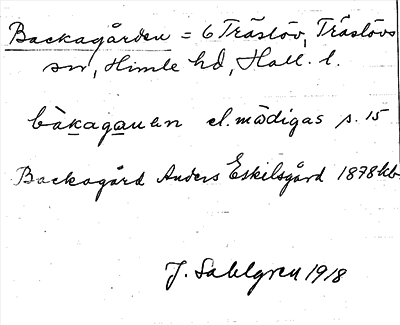 Backagården = 6 Träslöv, Träslövs
sn, Himle hd, Hall. l.
bàkagauen el. mödigas s. 15
Backagård Anders Eskilsgård 1878 kb
J. Sahlgren 1918